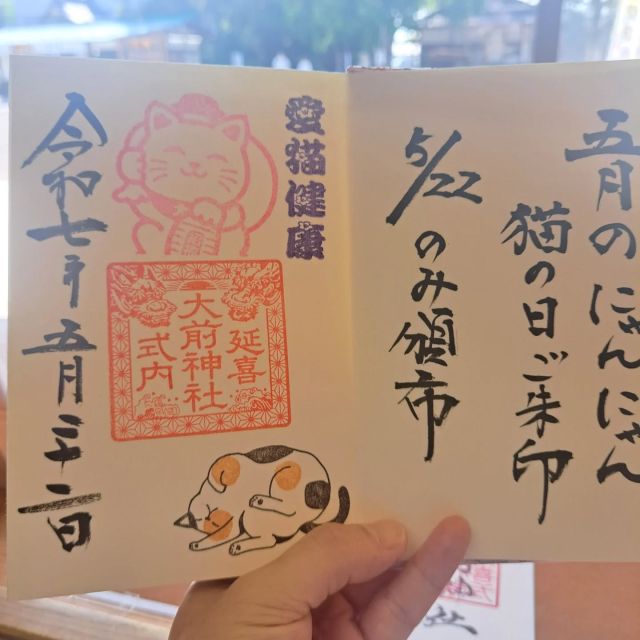 五月のにゃんにゃん
猫の日ご朱印
5/22のみ頒布
愛猫健康
延喜
大前神社
式内
令和七年五月二十二日